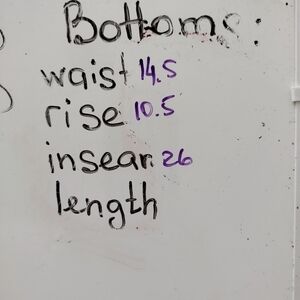 Bottoms:
waist 14.5
rise 10.5
insean 26
length